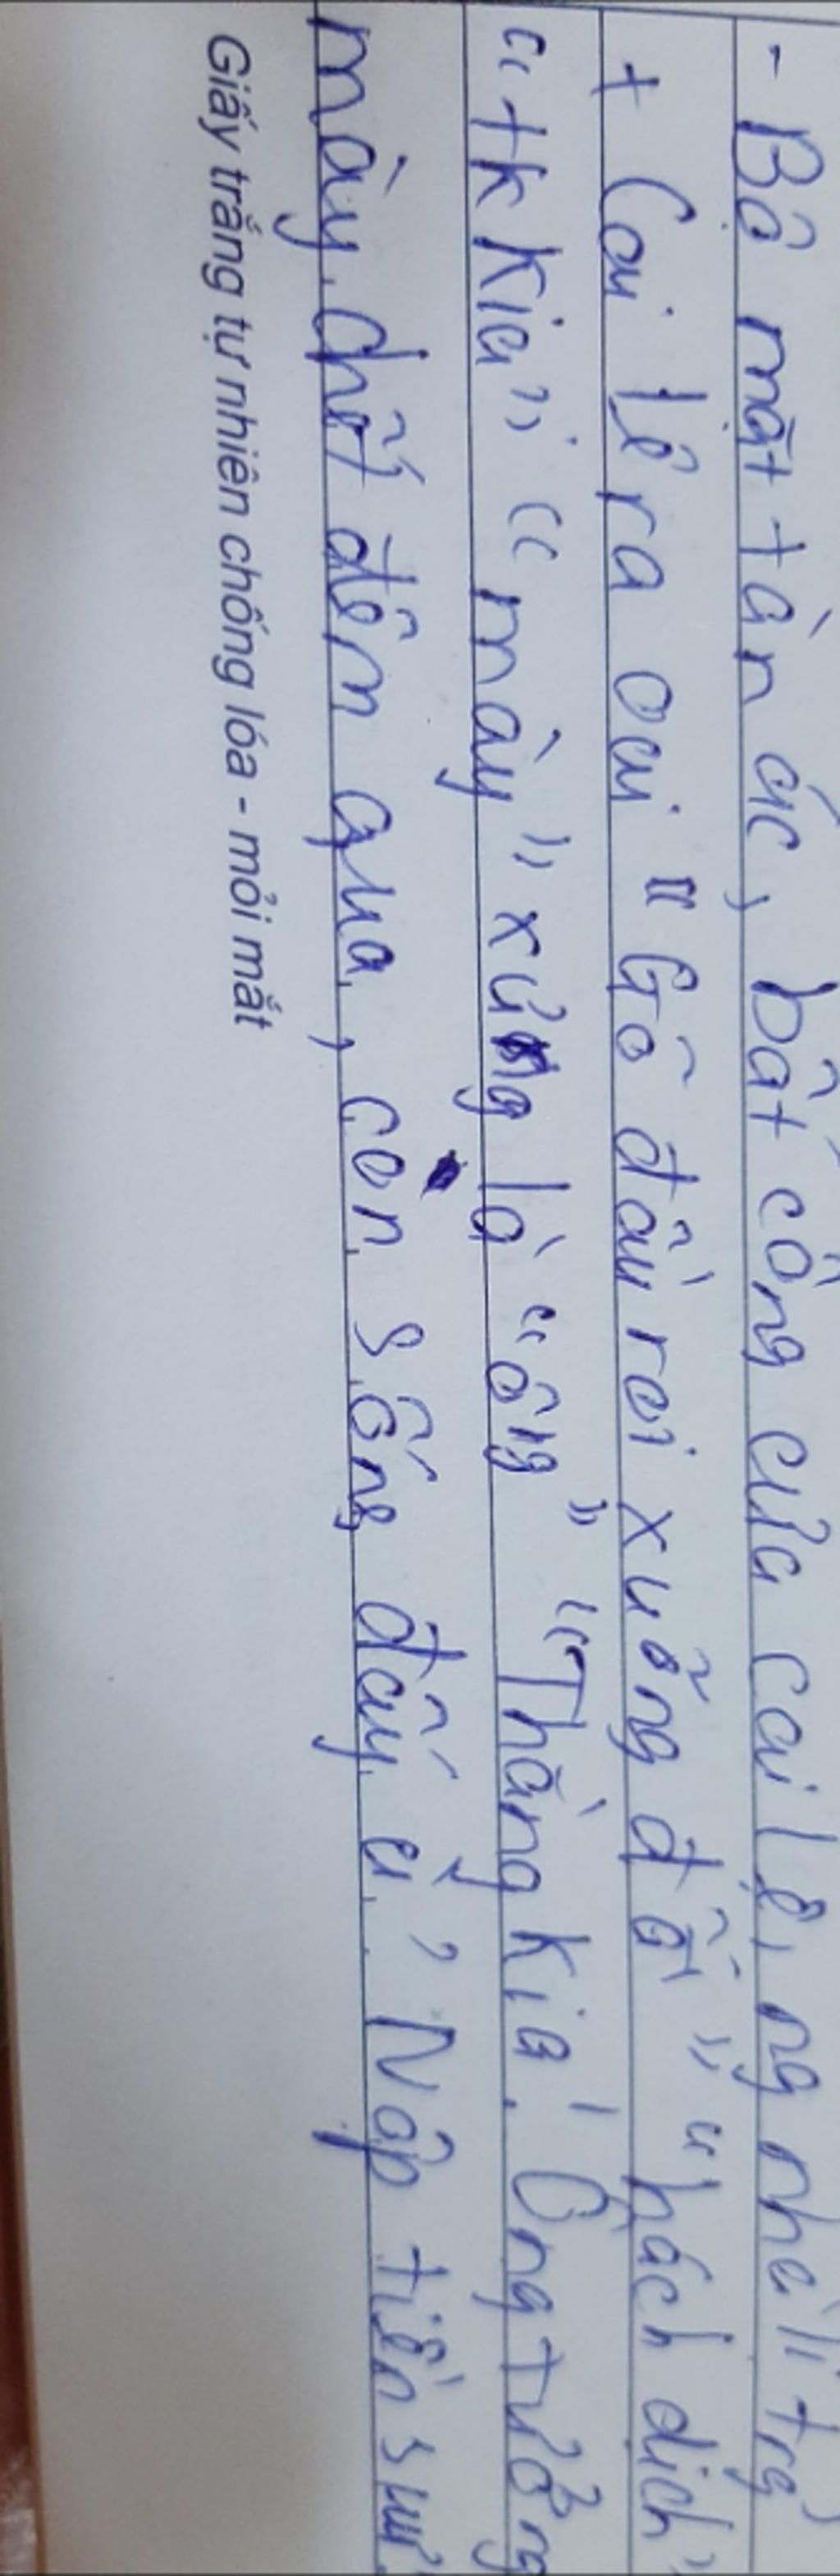 - Bộ mặt tàn ác, bất công của cai lệ, ng nhà lí trg
+ Cai lệ ra oai "Gõ đầu roi xuống đất" "hách dịch"
"tk kia" "mày" xưng là "ông" "Thằng kia! Ông tưởng
mày chết đêm qua, còn sống đấy à? Nộp tiền sưu
Giấy trắng tự nhiên chống lóa - mỏi mắt